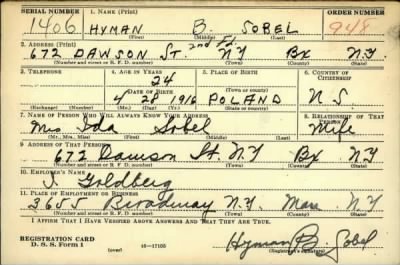 SERIAL NUMBER 1. NAME (Print) ORDER NUMBER
1406 HYMAN B. SOBEL 948
(First) (Middle) (Last)
2. ADDRESS (Print)
2nd Fl.
672 DAWSON St. NY Bx NY
(Number and street or R. F. D. number) (Town) (County) (State)
3. TELEPHONE 4. AGE IN YEARS 5. PLACE OF BIRTH 6. COUNTRY OF CITIZENSHIP
24 POLAND
DATE OF BIRTH (Town or county)
4 28 1916 U S.
(Exchange) (Number) (Mo.) (Day) (Yr.) (State or country)
7. NAME OF PERSON WHO WILL ALWAYS KNOW YOUR ADDRESS 8. RELATIONSHIP OF THAT PERSON
Mrs Ida Sobel Wife
(Mr., Mrs., Miss) (First) (Middle) (Last)
9. ADDRESS OF THAT PERSON
672 Dawson St. NY Bx NY
(Number and street or R. F. D. number) (Town) (County) (State)
10. EMPLOYER'S NAME
Goldberg
11. PLACE OF EMPLOYMENT OR BUSINESS
3655 Broadway N.Y. Man N.Y
(Number and street or R. F. D. number) (Town) (County) (State)
I AFFIRM THAT I HAVE VERIFIED ABOVE ANSWERS AND THAT THEY ARE TRUE.
REGISTRATION CARD
D. S. S. Form 1 (over) 16—17105 Hyman B Sobel
(Registrant's signature)